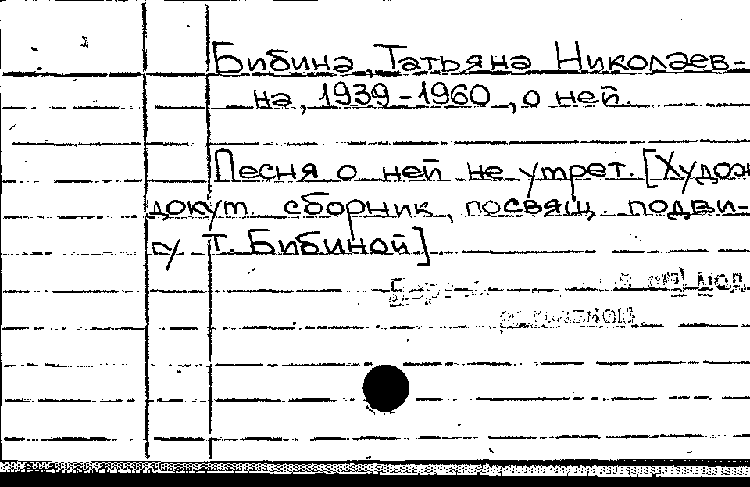 Бибина, Татьяна Николаев-
на, 1939-1960, о ней.
Песня о ней не умрет. [Худож
докум. сборник, посвящ. подви-
гу Т. Бибиной]